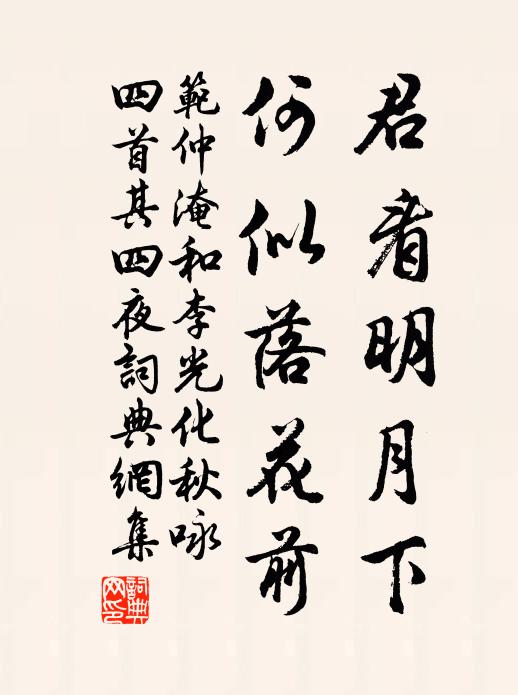 君看明月下
何似落花前
範仲淹和李光化秋咏
四首其四夜詞典網集
詞典
网印